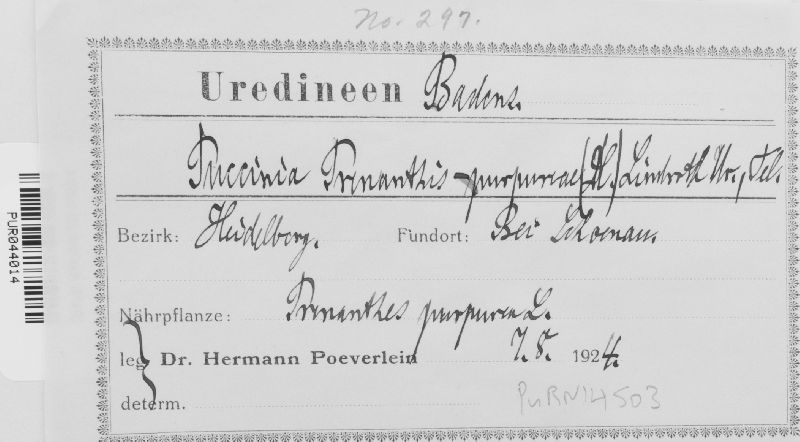 No. 297.
Uredineen Badens.
Puccinia Prenanthis-purpureae (DC.) Lindroth Ur., Tel.
Bezirk: Heidelberg. Fundort: Bei Schoenau.
Nährpflanze: Prenanthes purpurea L.
leg. Dr. Hermann Poeverlein 7. 8. 1924.
determ.
PURN14503
PUR044014